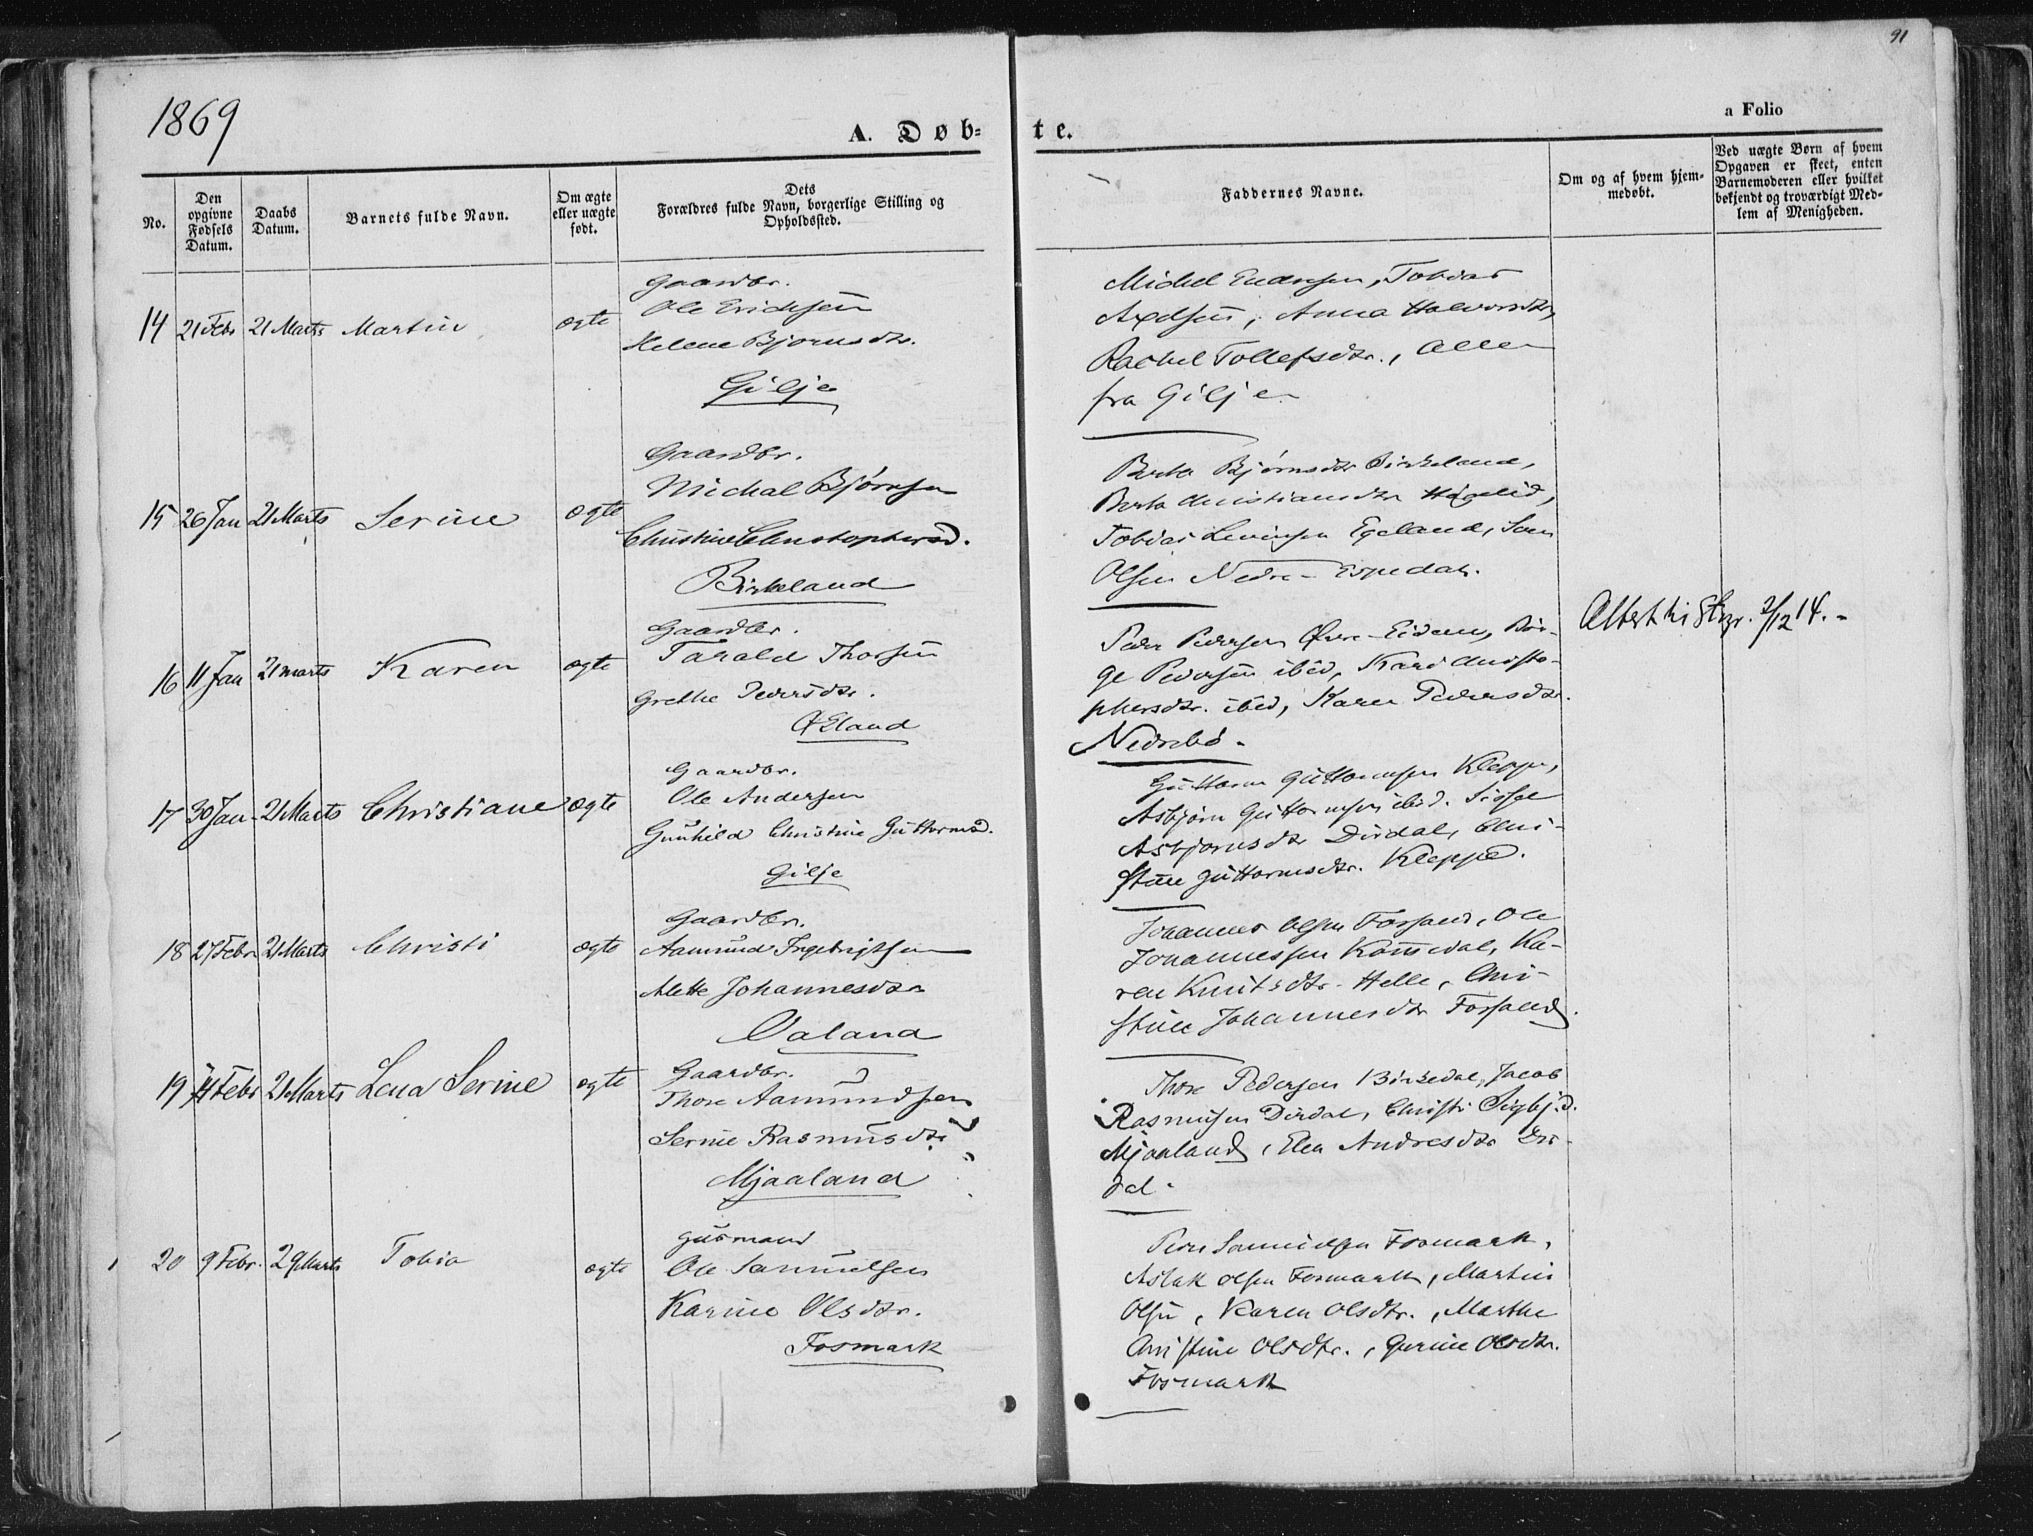 1869
91
A. Døb-
te.
a Folio
No.
Den opgivne Fødsels Datum.
Daabs Datum.
Barnets fulde Navn.
Om ægte eller uægte født.
Dets Forældres fulde Navn, borgerlige Stilling og Opholdssted.
Faddernes Navne.
Om og af hvem hjemmedøbt.
Ved uægte Børn af hvem Opgaven er skeet, enten Barnemoderen eller hvilket bekjendt og troværdigt Medlem af Menigheden.
14 21 Febr 21 Marts Martin ægte
Gaardbr.
Ole Ericksen
Helene Bjornsdtr.
Gilje
Michel Endresen, Tobias
Axelsen, Anna Halvorsdtr,
Rachel Tollefsdtr., Alle
fra Gilje
15 26 Jan 21 Marts Serine ægte
Gaardbr.
Michal Bjørnsen
Christine Christophersd.
Birkeland
Berta Bjørnsdtr Birkeland,
Berta Christiansdtr Høgelid,
Tobias Levinsen Egeland,
Olsen Nedre-Espedal.
16 11 Jan 21 marts Karen ægte
Gaardbr.
Tarald Thorsen
Grethe Pedersdtr.
Øeland
Peder Pedersen Øvre-Eidem, Bør-
ge Pedersen ibid, Kari Christo-
phersdtr. ibid, Karen Pedersdtr.
Nedrebø.
Attest til 2/12 14.-
17 30 Jan 21 Marts Christiane ægte
Gaardbr.
Ole Andersen
Gunhild Christine Guttormsd.
Gilje
Guttorm Guttormsen Kleppe,
Asbjørn Guttormsen ibid. Sissel
Asbjørnsdtr Dirdal, Chri-
stine Guttormsdtr. Kleppe.
18 27 Febr 21 Marts Christi ægte
Gaardbr.
Aamund Ingebrigtsen
Alette Johannesdtr
Oaland
Johannes Olsen Forsand, Ole
Johannessen Kommedal, Ka-
ren Knutsdtr. Helle, Chri-
stine Johannesdtr Forsand.
19 14 Febr 21 Marts Lena Serine ægte
Gaardbr.
Thore Aamundsen
Serine Rasmusdtr
Mjaaland
Thore Pedersen Birkedal, Jacob
Rasmusen Dirdal, Christi Sigbj.d.
Mjaaland, Elen Andresdtr Dir-
dal.
20 9 Febr. 29 Marts Tobia ægte
Husmand
Ole Samuelsen
Karine Olsdtr.
Fosmark
Peder Samuelsen Fosmark,
Aslak Olsen Fosmark, Martin
Olsen, Karen Olsdtr., Marthe
Christine Olsdtr., Gurine Olsdtr.
Fosmark